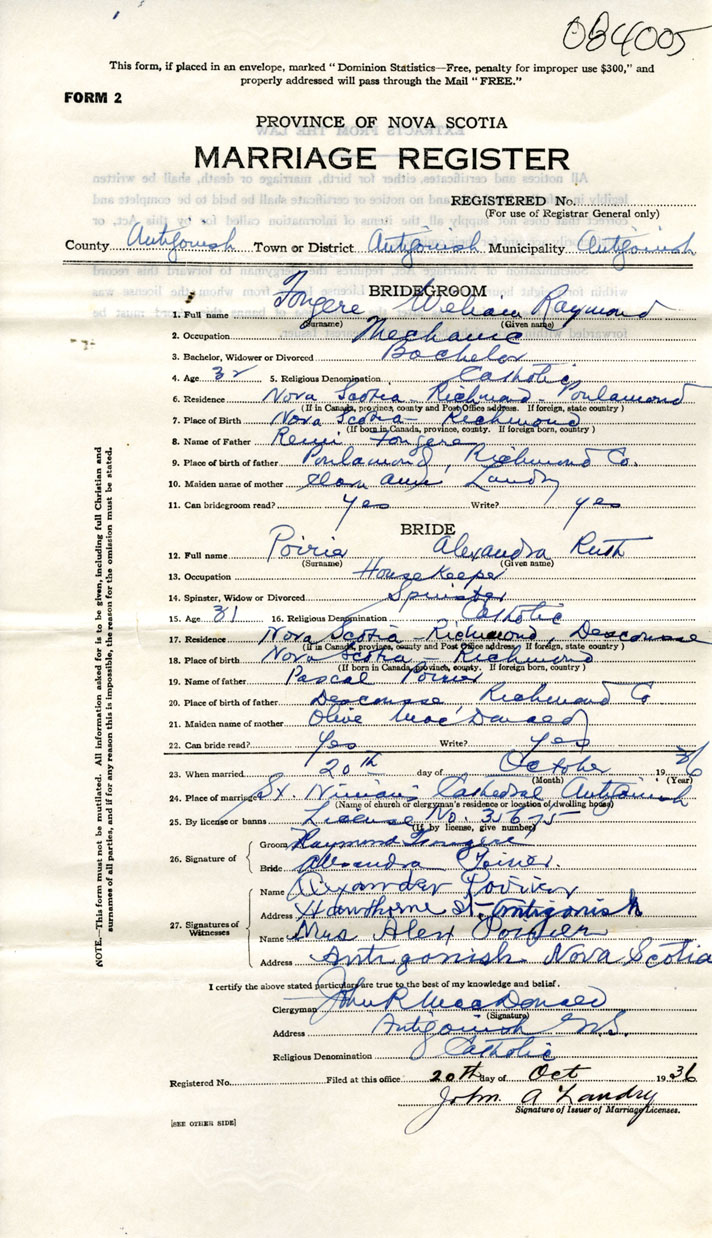 084005
This form, if placed in an envelope, marked "Dominion Statistics—Free, penalty for improper use $300," and
properly addressed will pass through the Mail "FREE."
FORM 2
PROVINCE OF NOVA SCOTIA
MARRIAGE REGISTER
REGISTERED No.
(For use of Registrar General only)
County Antigonish Town or District Antigonish Municipality Antigonish
BRIDEGROOM
1. Full name Fougere William Raymond
(Surname) (Given name)
2. Occupation Mechanic
3. Bachelor, Widower or Divorced Bachelor
4. Age 32 5. Religious Denomination Catholic
6. Residence Nova Scotia - Richmond - Poulamond
(If in Canada, province, county and Post Office address. If foreign, state country)
7. Place of Birth Nova Scotia - Richmond
(If born in Canada, province, county. If foreign born, country)
8. Name of Father Remi Fougere
9. Place of birth of father Poulamond, Richmond Co.
10. Maiden name of mother Ann Landry
11. Can bridegroom read? Yes Write? yes
BRIDE
12. Full name Poirier Alexandra Ruth
(Surname) (Given name)
13. Occupation Housekeeper
14. Spinster, Widow or Divorced Spinster
15. Age 31 16. Religious Denomination Catholic
17. Residence Nova Scotia - Richmond, Descousse
(If in Canada, province, county and Post Office address. If foreign, state country)
18. Place of birth Nova Scotia - Richmond
(If born in Canada, province, county. If foreign born, country)
19. Name of father Pascal Poirier
20. Place of birth of father Descousse, Richmond Co
21. Maiden name of mother Olive MacDonald
22. Can bride read? Yes Write? Yes
23. When married 20th day of October 1936
(Month) (Year)
24. Place of marriage St. Ninian's Cathedral Antigonish
(Name of church or clergyman's residence or location of dwelling house)
25. By license or banns License No. 35675
(If by license, give number)
26. Signature of Groom Raymond Fougere
Bride Alexandra Poirier.
27. Signatures of Witnesses Name Alexander Poirier
Address Hawthorne St - Antigonish
Name Mrs Alex Poirier
Address Antigonish Nova Scotia
I certify the above stated particulars are true to the best of my knowledge and belief.
Clergyman John R MacDonald
(Signature)
Address Antigonish N.S.
Religious Denomination Catholic
Registered No. Filed at this office 20th day of Oct 1936
John A Landry
Signature of Issuer of Marriage Licenses.
[SEE OTHER SIDE]
NOTE.—This form must not be mutilated. All information asked for is to be given, including full Christian and
surnames of all parties, and if for any reason this is impossible, the reason for the omission must be stated.